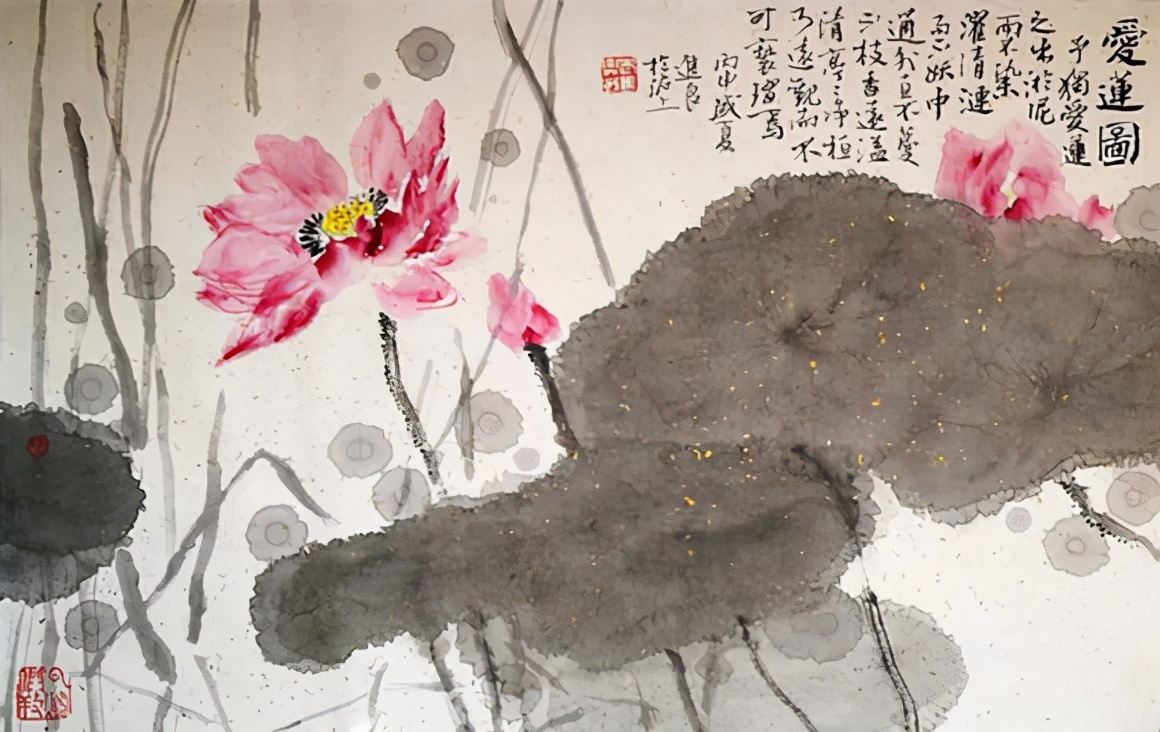 愛蓮圖
予獨愛蓮
之出淤泥
而不染
濯清漣
而不妖中
通外直不蔓
不枝香遠溢
清亭〻淨植
可遠觀而不
可褻翫焉
丙申盛夏
進良
於滬上